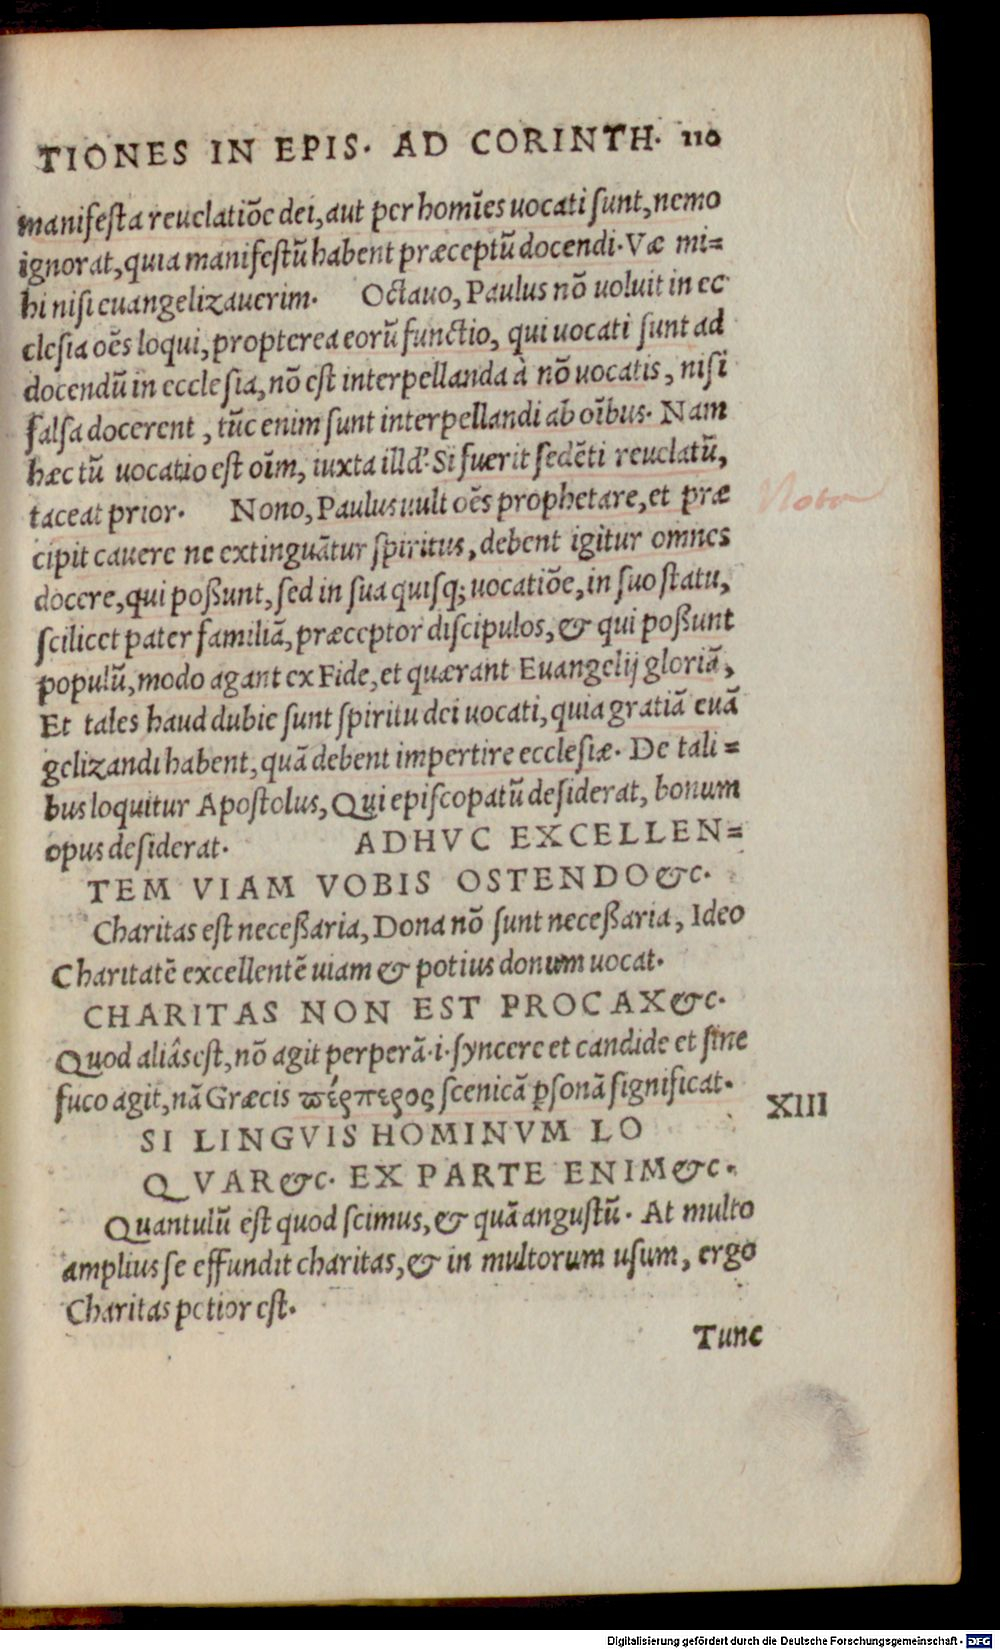 TIONES IN EPIS. AD CORINTH. 110
manifesta reuelatiōe dei, aut per homīes uocati sunt, nemo
ignorat, quia manifestū habent præceptū docendi. Væ mi=
hi nisi euangelizauerim. Octauo, Paulus nō uoluit in ec
clesia oēs loqui, propterea eorū functio, qui uocati sunt ad
docendū in ecclesia, nō est interpellanda à nō uocatis, nisi
falsa docerent, tūc enim sunt interpellandi ab oībus. Nam
hæc tū uocatio est oīm, iuxta illd'. Si fuerit sedēti reuelatū,
taceat prior. Nono, Paulus uult oēs prophetare, et præ
Nota
cipit cauere ne extinguātur spiritus, debent igitur omnes
docere, qui poßunt, sed in sua quisq; uocatiōe, in suo statu,
scilicet pater familiā, præceptor discipulos, & qui poßunt
populū, modo agant ex Fide, et quærant Euangelij gloriā,
Et tales haud dubie sunt spiritu dei uocati, quia gratiā euā
gelizandi habent, quā debent impertire ecclesiæ. De tali=
bus loquitur Apostolus, Qui episcopatū desiderat, bonum
opus desiderat. ADHVC EXCELLEN=
TEM VIAM VOBIS OSTENDO &c.
Charitas est neceßaria, Dona nō sunt neceßaria, Ideo
Charitatē excellentē uiam & potius donum uocat.
CHARITAS NON EST PROCAX &c.
Quod aliâs est, nō agit perperā .i. syncere et candide et sine
fuco agit, nā Græcis πέρπερος scenicā ꝑsonā significat.
XIII
SI LINGVIS HOMINVM LO
QVAR &c. EX PARTE ENIM &c.
Quantulū est quod scimus, & quā angustū. At multo
amplius se effundit charitas, & in multorum usum, ergo
Charitas potior est.
Tunc
Digitalisierung gefördert durch die Deutsche Forschungsgemeinschaft - DFG